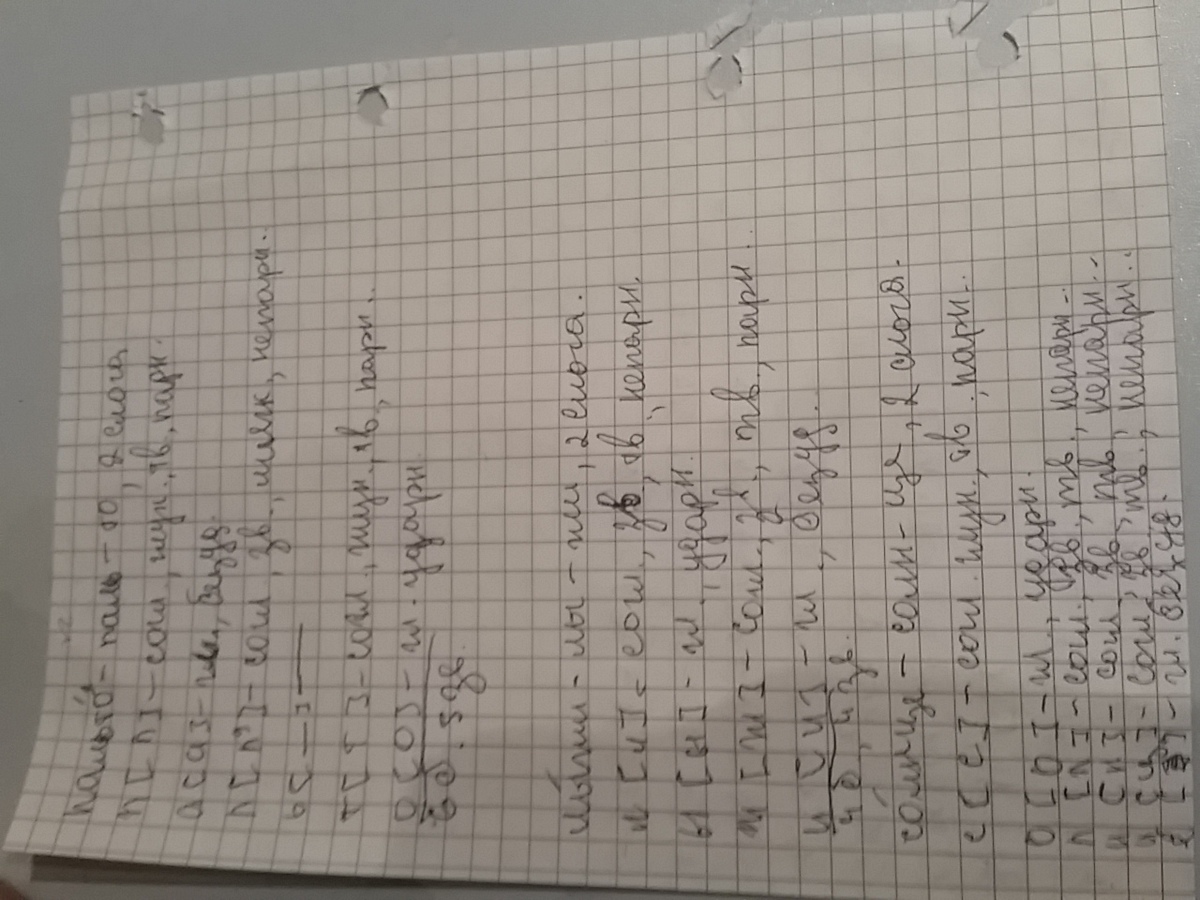 пальто́ - паль - то, 2 слога
п [п] - согл, глух., тв, парн.
а [а] - гл, безуд.
л [л'] - согл, зв., мягк, непарн..
ь [—]
т [т] - согл, глух, тв, парн..
о [о] - гл. ударн.
6 б. 5 зв.
мы́ши - мы - ши, 2 слога.
м [м] - согл, зв, тв., непарн.
ы [ы] - гл., ударн.
ш [ш] - согл., тв., парн..
и [и] - гл, безуд.
4 б, 4 зв.
со́лнце - солн - це, 2 слога.
с [с] - согл. глух., тв, парн..
о [о] - гл., ударн.
л [л] - согл., зв, тв., непарн..
н [н] - согл, зв, тв., непарн...
ц [ц] - согл, тв., непарн..